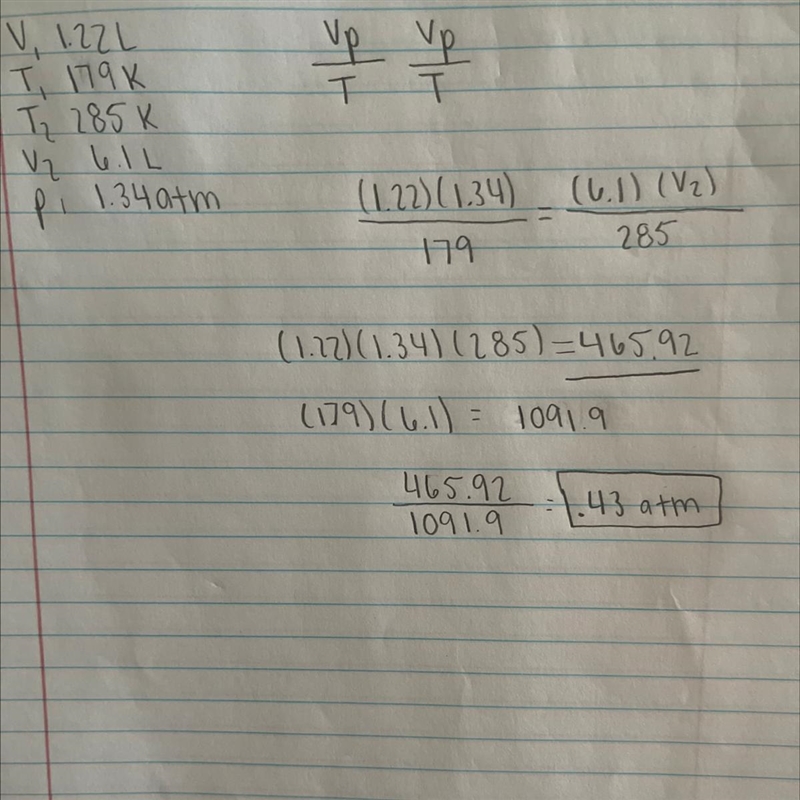 V₁ 1.22L
T₁ 179K
T₂ 285K
V₂ 6.1L
P₁ 1.34atm
Vp/T Vp/T
(1.22)(1.34)/179 = (6.1)(V₂)/285
(1.22)(1.34)(285)=465.92
(179)(6.1) = 1091.9
465.92/1091.9 = .43 atm